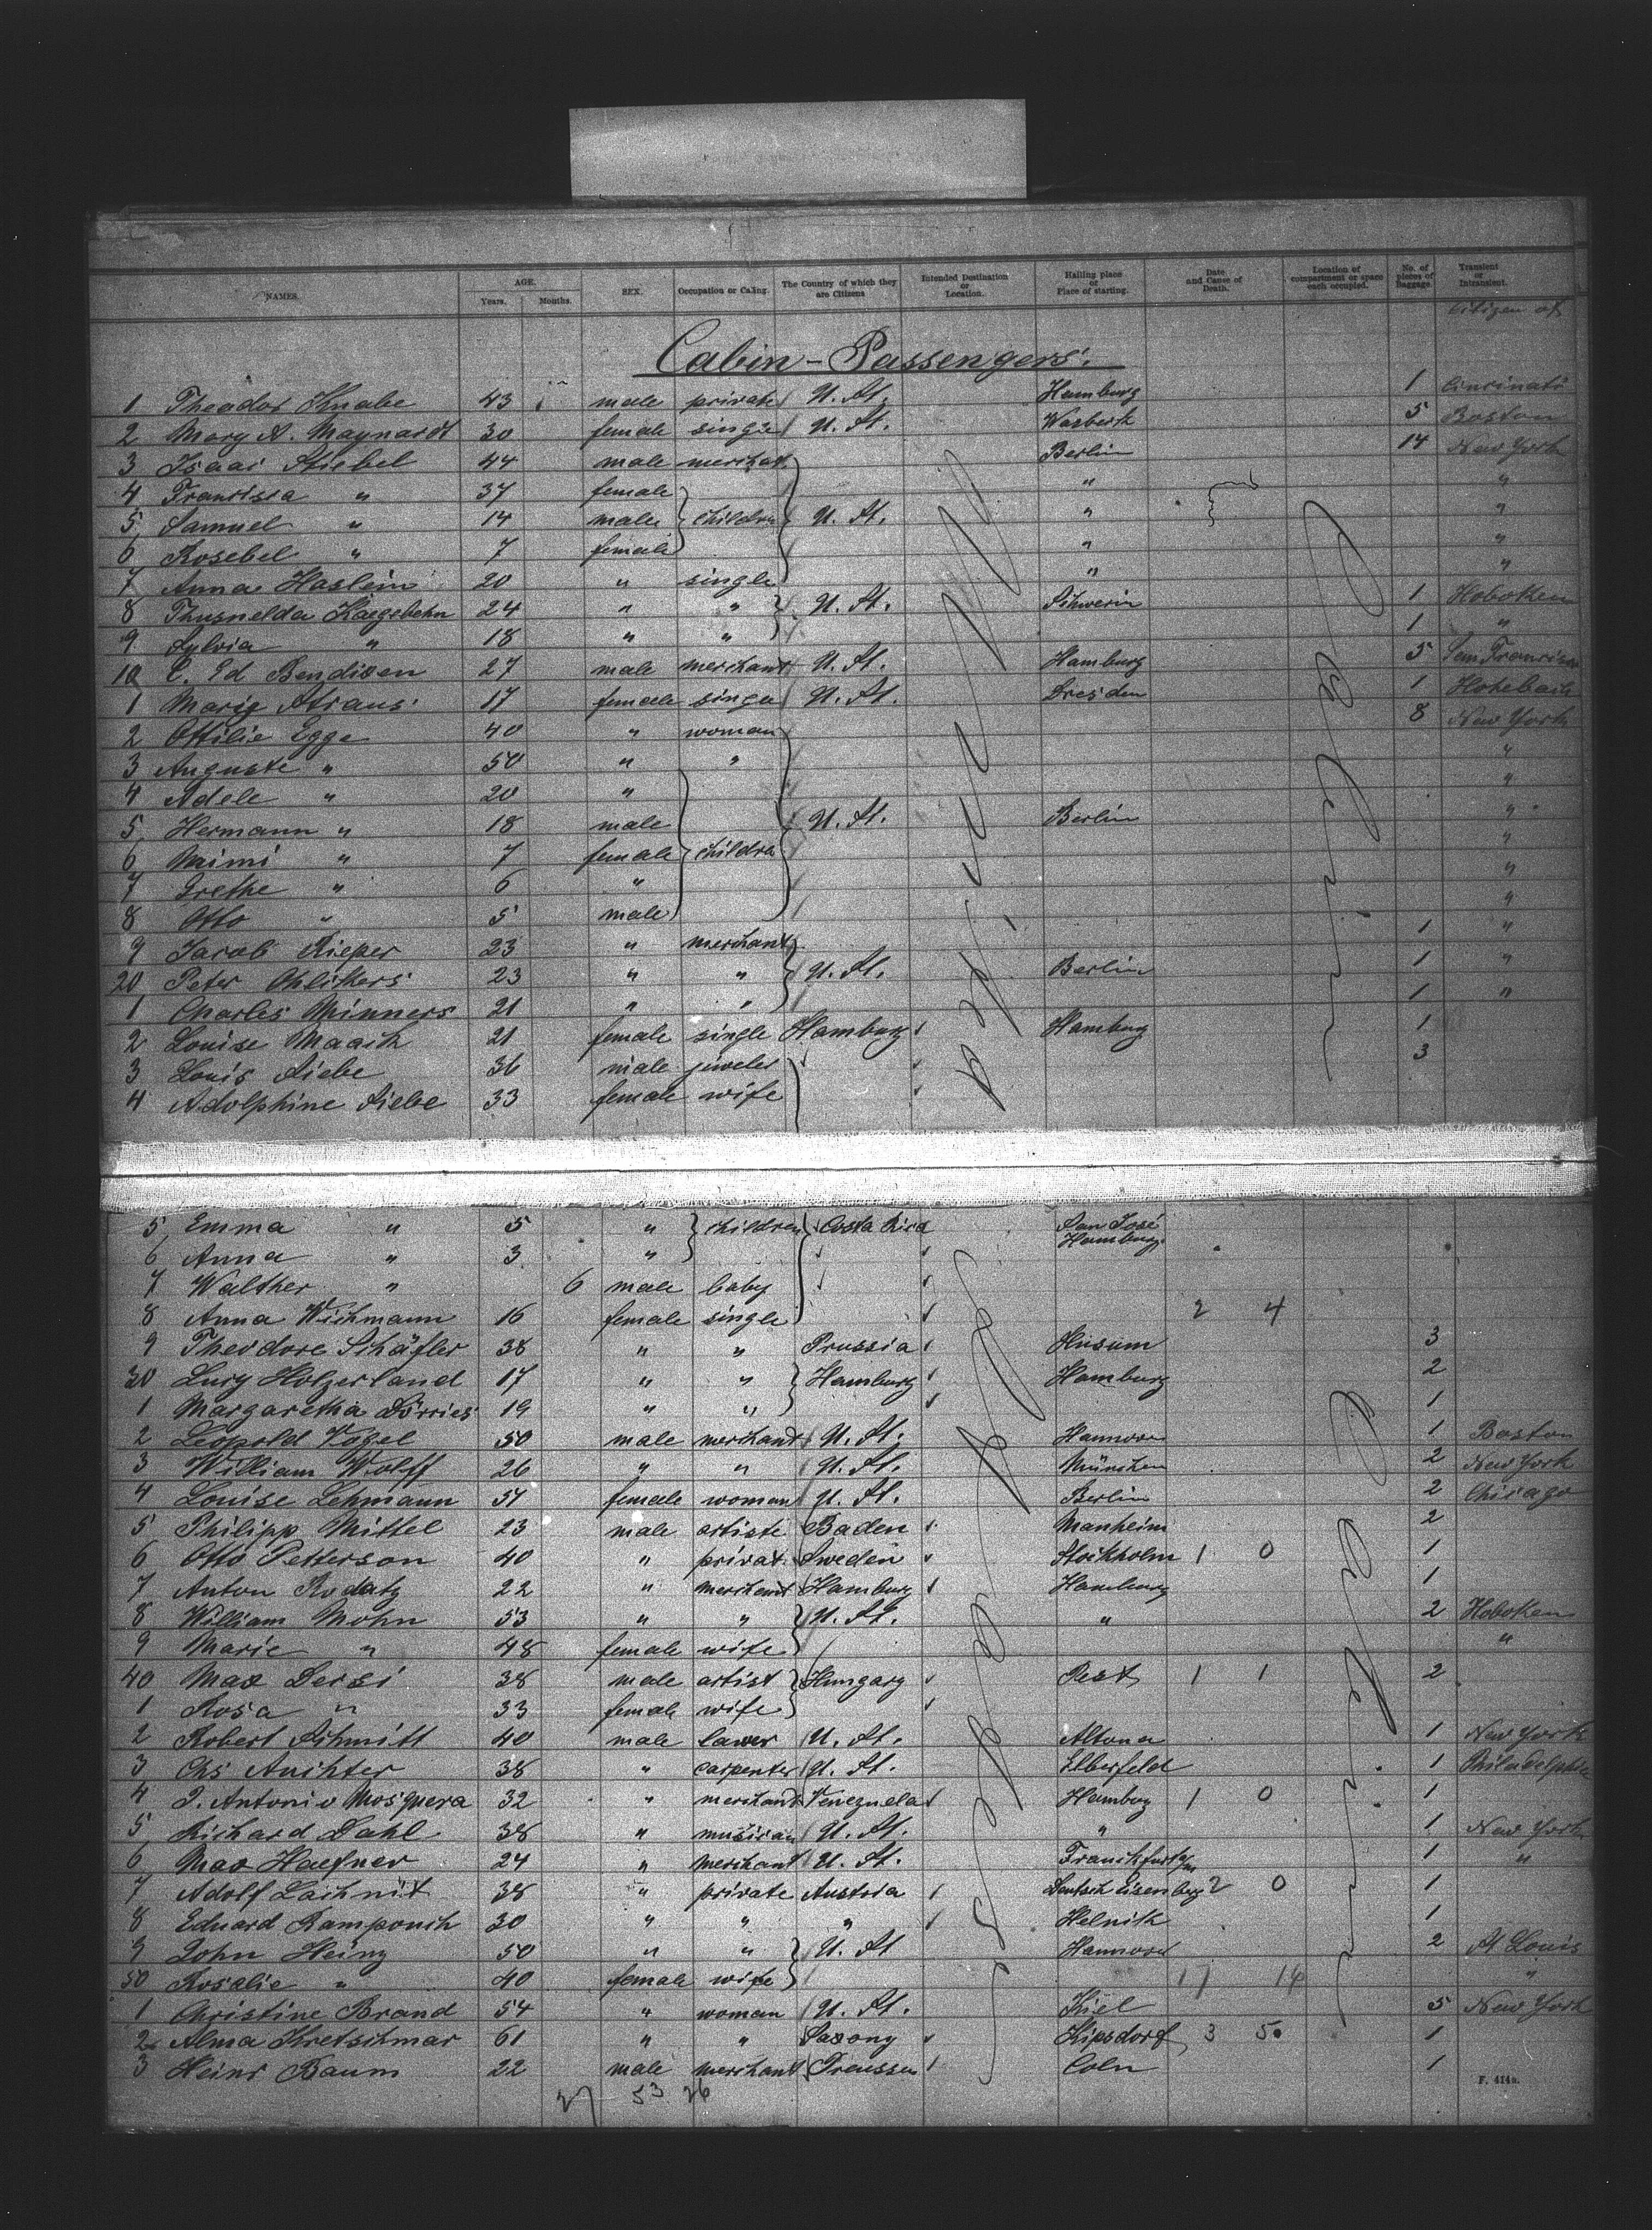 NAMES. AGE. Years. Months. SEX. Occupation or Calling. The Country of which they are Citizens Intended Destination or Location. Hailing place or Place of starting. Date and Cause of Death. Location of compartment or space each occupied. No. of pieces of Baggage. Transient or Intransient.
Citizen of
Cabin-Passengers.
1 Theodor Knabe 43 male private U. St. Hamburg 1 Cincinati
2 Mary A. Maynardt 30 female single U. St. 5 Boston
3 Isaac Stiebel 44 male merchant Berlin 14 New York
4 Francisca " 37 female " "
5 Samuel " 14 male children U. St. " "
6 Rosebel " 7 female " "
7 Anna Haslein 20 " single " "
8 Thusnelda Kaegebehn 24 " " U. St. Schwerin 1 Hoboken
9 Sylvia " 18 " " 1 "
10 C. Ed Bendixen 27 male merchant U. St. Hamburg 5 San Francisco
1 Marie Straus 17 female single U. St. Dresden 1
2 Ottilie Egge 40 " woman 8 New York
3 Auguste " 50 " " "
4 Adele " 20 " "
5 Hermann " 18 male U. St. Berlin "
6 Mimi " 7 female children "
7 Grethe " 6 " "
8 Otto " 5 male "
9 Jacob Rieper 23 " merchant 1 "
20 Peter Ohlikers 23 " " U. St. Berlin 1 "
1 Charles Minners 21 " " 1 "
2 Louise Maack 21 female single Hamburg Hamburg 1
3 Louis Siebe 36 male jeweler 3
4 Adolphine Siebe 33 female wife
5 Emma " 5 " children Costa Rica San José
Hamburg
6 Anna " 3 "
7 Walther " 6 male baby
8 Anna Wichmann 16 female single 2 4
9 Theodore Schäfler 38 " " Prussia Husum 3
30 Lucy Holzerland 17 " " Hamburg Hamburg 2
1 Margaretha Dörries 19 " " 1
2 Leopold Vogel 50 male merchant U. St. Hannover 1 Boston
3 William Wolff 26 " " U. St. München 2 New York
4 Louise Lehmann 51 female woman U. St. Berlin 2 Chicago
5 Philipp Mittel 23 male artiste Baden Manheim 2
6 Otto Petterson 40 " privat Sweden Stockholm 1 0 1
7 Anton Rodatz 22 " merchant Hamburg Hamburg 1
8 William Mohn 53 " " U. St. " 2 Hoboken
9 Marie " 48 female wife "
40 Max Dersi 38 male artist Hungary Pest 1 1 2
1 Rosa " 33 female wife
2 Robert Schmitt 40 male lawer U. St. Altona 1 New York
3 Chs Auchter 38 " carpenter U. St. Elberfeld 1 Philadelphia
4 J. Antonio Mosquera 32 " merchant Venezuela Hamburg 1 0 1
5 Richard Dahl 38 " musician U. St. " 1 New York
6 Max Haefner 24 " merchant U. St. Franckfurt a/m 1 "
7 Adolf Lachnit 38 " private Austria Deutsch Eisenberg 2 0 1
8 Eduard Ramponch 30 " " " 1
9 John Heinz 50 " " U. St Hannover 2 St Louis
50 Rosalie " 40 female wife 17 14 "
1 Christine Brand 54 " woman U. St. Kiel 5 New York
2 Alma Kretschmar 61 " " Saxony Kipsdorf 3 5 1
3 Heinr Baum 22 male merchant Preussen Coln 1
27 53 26
F. 414a.